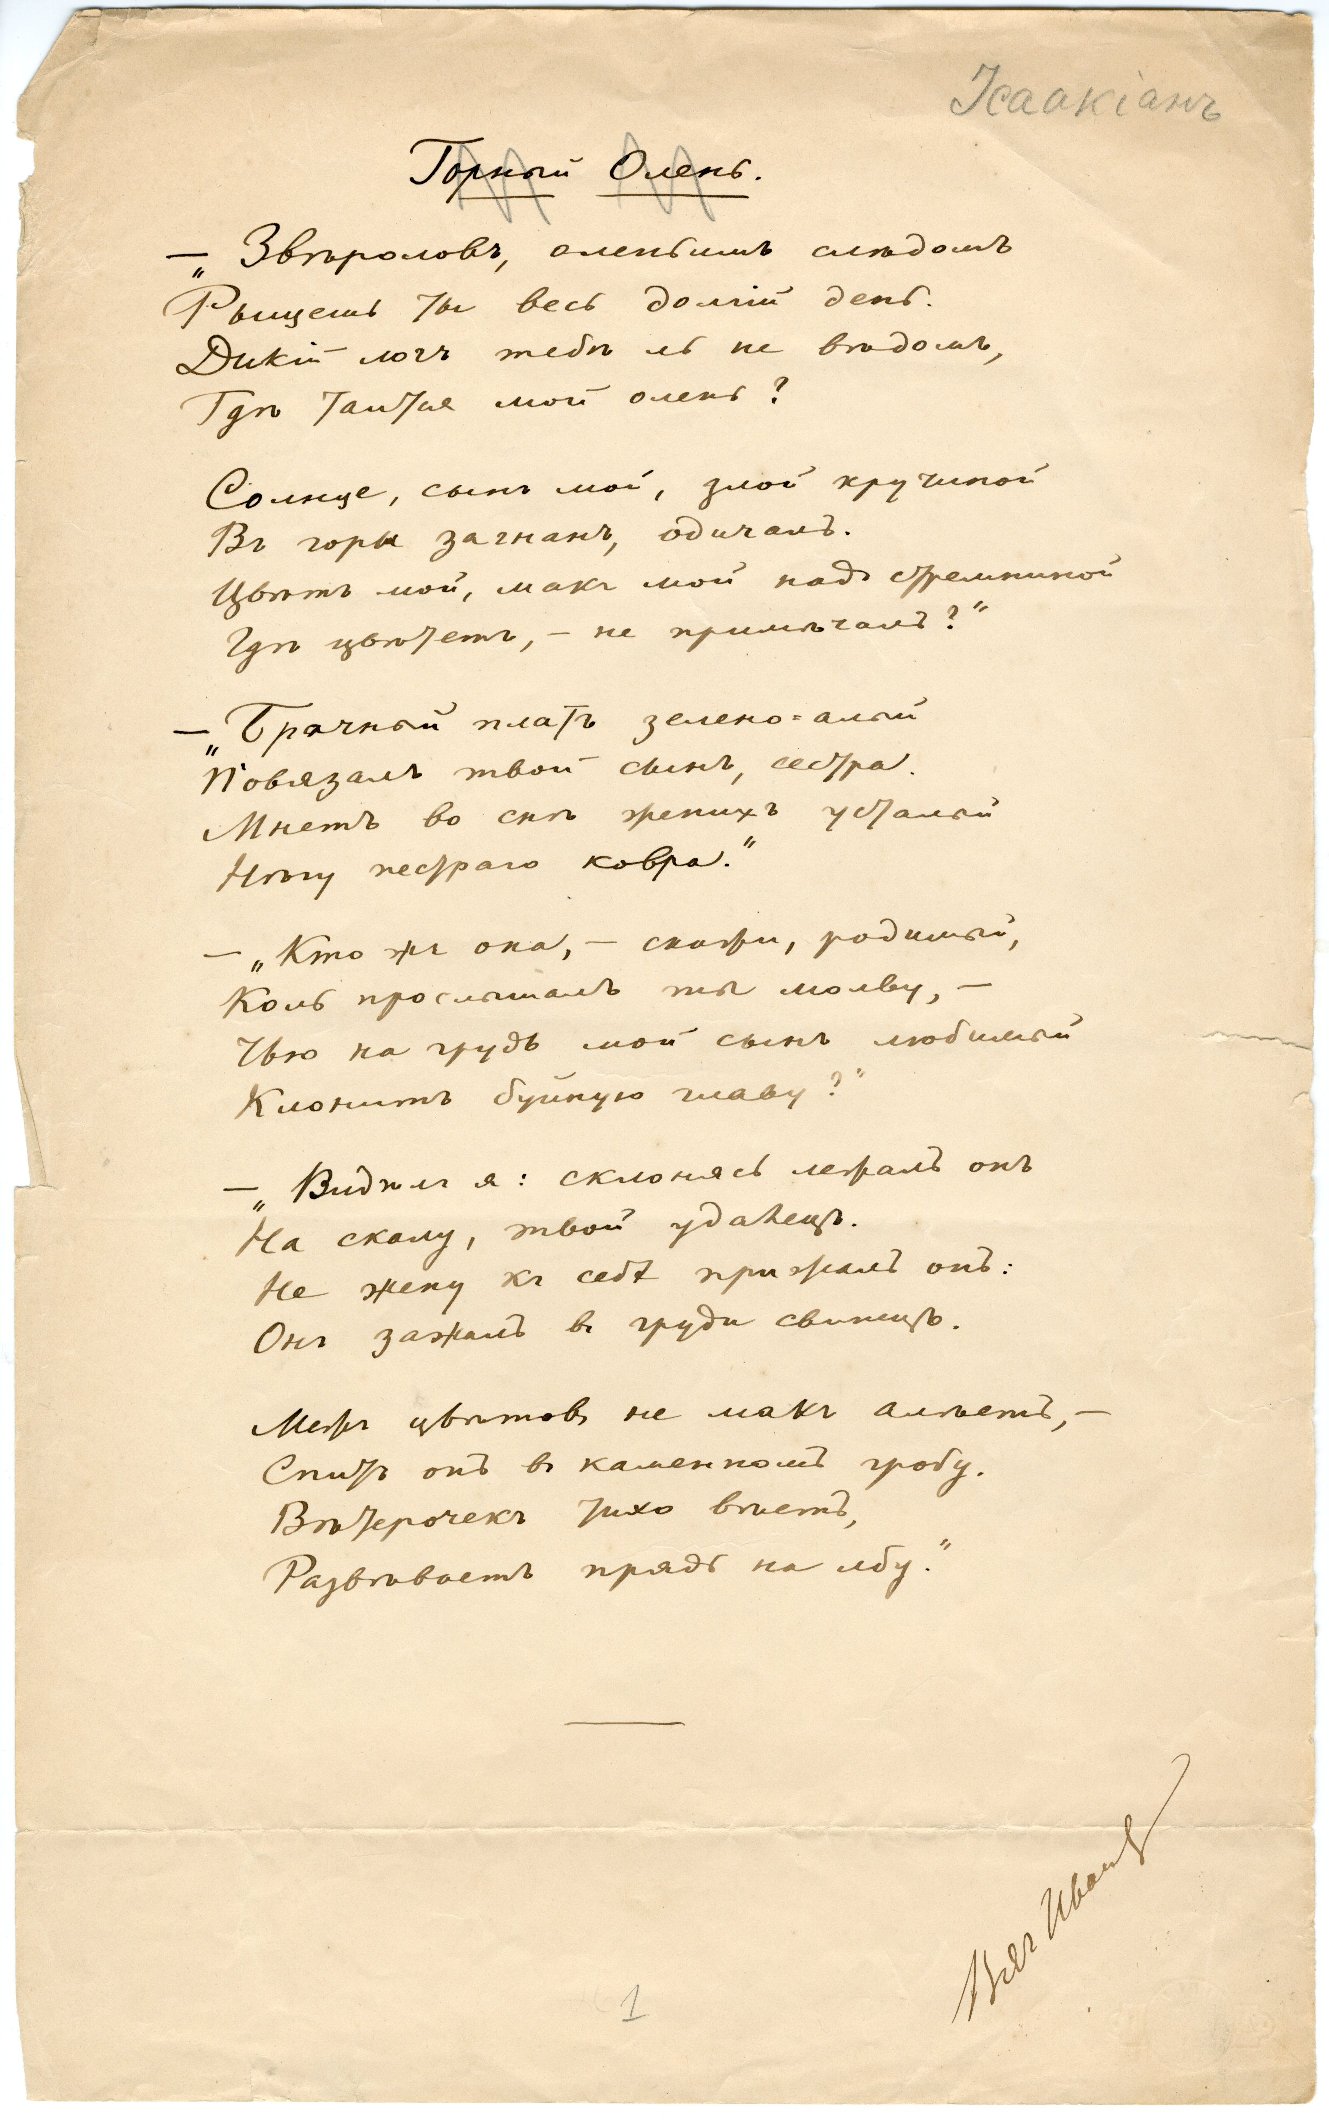 Исаакіанъ
Горный Олень.
— „Звѣроловъ, оленьимъ слѣдомъ
Рыщешь ты весь долгій день.
Дикій логъ тебѣ ль не вѣдомъ,
Гдѣ таится мой олень?
Солнце, сынъ мой, злой кручиной
Въ горы загнанъ, одичалъ.
Цвѣтъ мой, макъ мой надъ стремниной
Гдѣ цвѣтетъ, – не примѣчалъ?"
— „Брачный платъ зелено-алый
Повязалъ твой сынъ, сестра.
Мнетъ во снѣ женихъ усталый
Нѣгу пестраго ковра."
— „Кто жъ она, – скажи, родимый,
Коль прослышалъ ты молву, –
Чью на грудь мой сынъ любимый
Клонитъ буйную главу?"
— „Видѣлъ я: склонясь лежалъ онъ
На скалу, твой удалецъ.
Не жену къ себѣ прижалъ онъ:
Онъ зажалъ въ груди свинецъ.
Межъ цвѣтовъ не макъ алѣетъ, –
Спитъ онъ въ каменномъ гробу.
Вѣтерочекъ тихо вѣетъ,
Развѣваетъ прядь на лбу."
Вяч Иванов
1